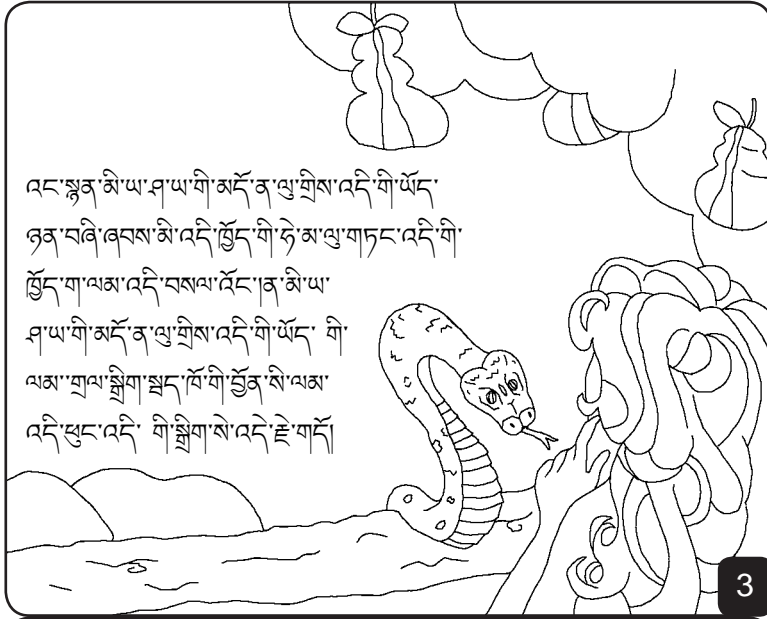 འང་སྙན་མི་ཡ་ཤ་ཡ་གི་མདོ་ན་ལུ་གྲིས་འདི་གི་ཡོད་
ཉན་བཞི་ཞབས་མི་འདི་ཁྱོད་གི་ཧེ་མ་ལུ་གཏང་འདི་གི་
ཁྱོད་ག་ལམ་འདི་བསལ་འོང་།ན་མི་ཡ་
ཤ་ཡ་གི་མདོ་ན་ལུ་གྲིས་འདི་གི་ཡོད་ གི་
ལམ་་གྲལ་སྒྲིག་སྦད་ཁོ་གི་བྱོན་སི་ལམ་
འདི་ཕུང་འདི་ གི་སྒྲིག་སེ་འདེ་རྫེ་གདོ།
3